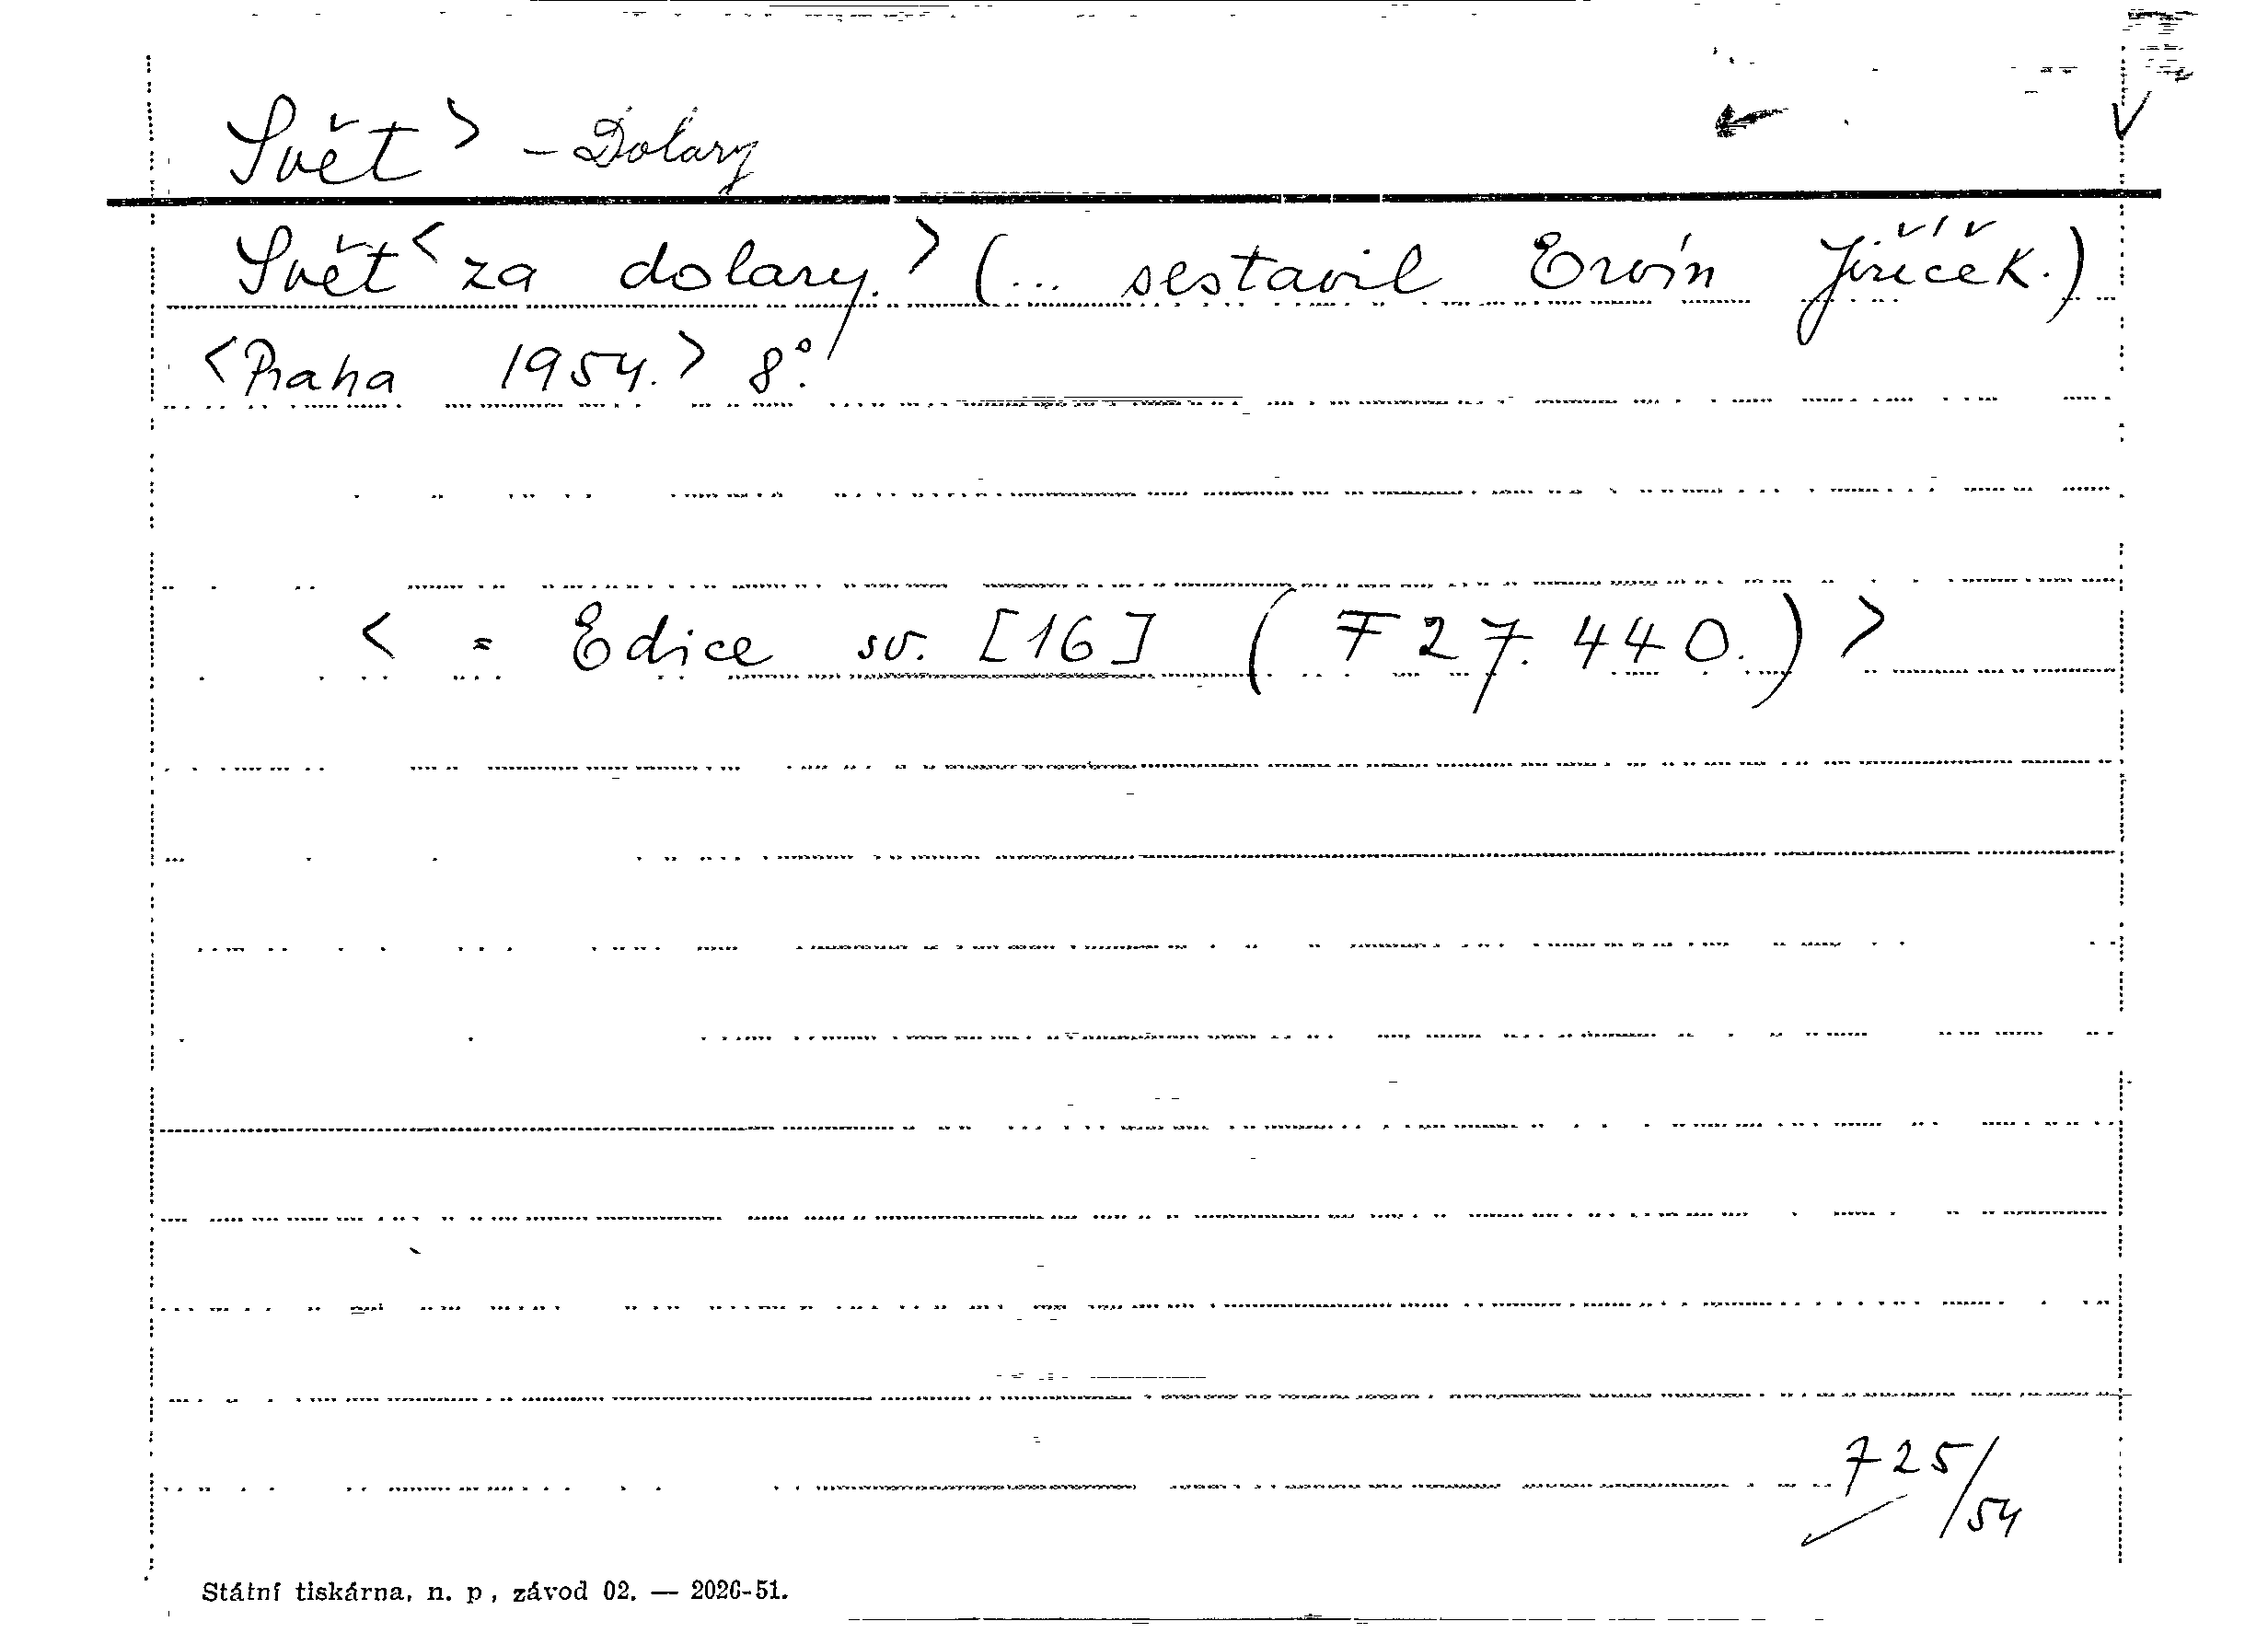 Svět> – Dolary
Svět <za dolary.> (... sestavil Ervín Jiříček.)
<Praha 1954.> 8°.
< = Edice sv. [16] (F 27.440.) >
725/54
Státní tiskárna, n. p., závod 02. — 2026-51.